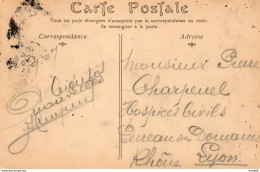 Carte Postale
Tous les pays étrangers n'acceptent pas la correspondance au recto.
Se renseigner à la poste.
Correspondance
Adresse
Monsieur Pierre
Charpenel
Hospices Civils
Bureau des Domaines
Rhône Lyon